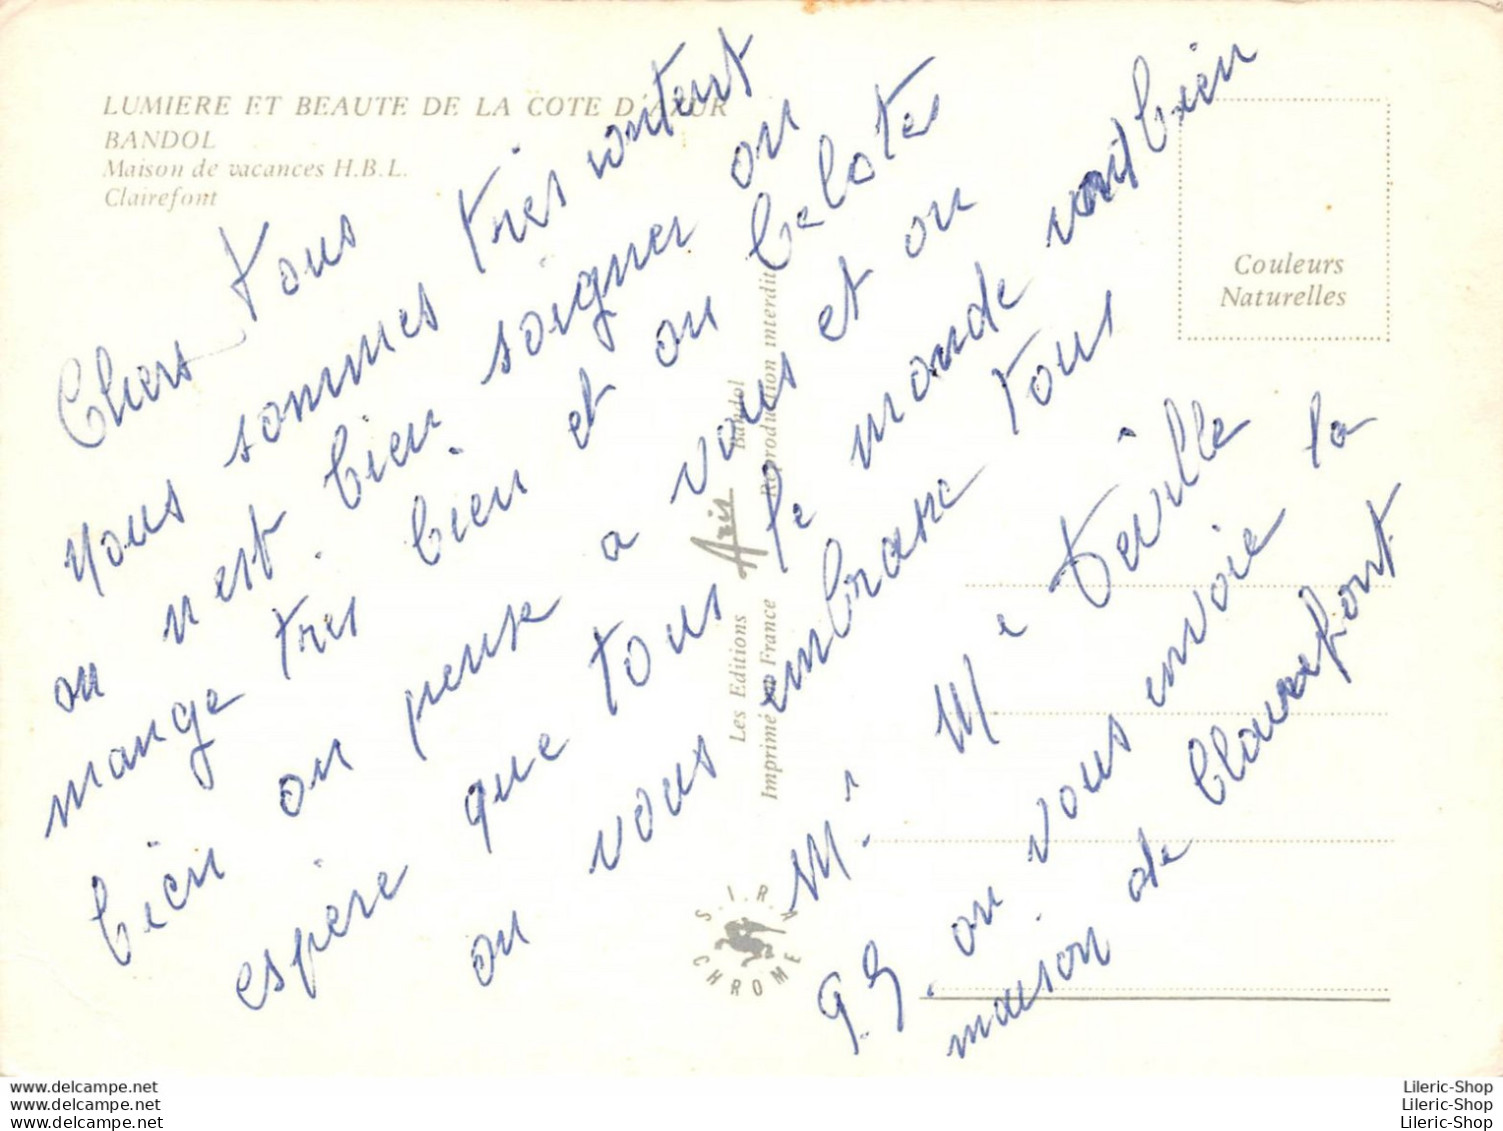 LUMIERE ET BEAUTE DE LA COTE D'AZUR
BANDOL
Maison de vacances H.B.L.
Clairefont
Couleurs
Naturelles
Chers tous
nous sommes très content
on n'est bien soigner on
mange très bien et on belotes
bien on pense a vous et on
espère que tous le monde vad bien
on vous embrasse tous
Mr Me
P.S. on vous envoie la
maison de Clairefont
Les Editions Aris Bandol
Imprimé en France Reproduction interdit
S.I.R.A
CHROME
www.delcampe.net
www.delcampe.net
www.delcampe.net
Lileric-Shop
Lileric-Shop
Lileric-Shop